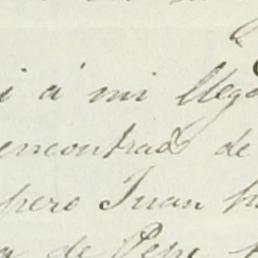 i á mi llega
encontrado de
pero Juan h
a de Pepe